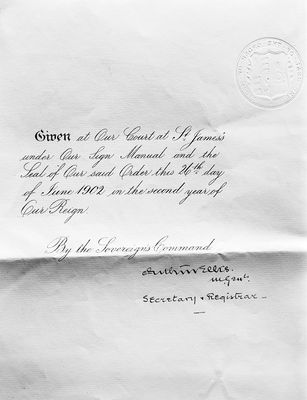 Given at Our Court at St. James's
under Our Sign Manual and the
Seal of Our said Order this 26th day
of June 1902 in the second year of
Our Reign.
By the Sovereign's Command
Arthur Ellis.
Secretary & Registrar